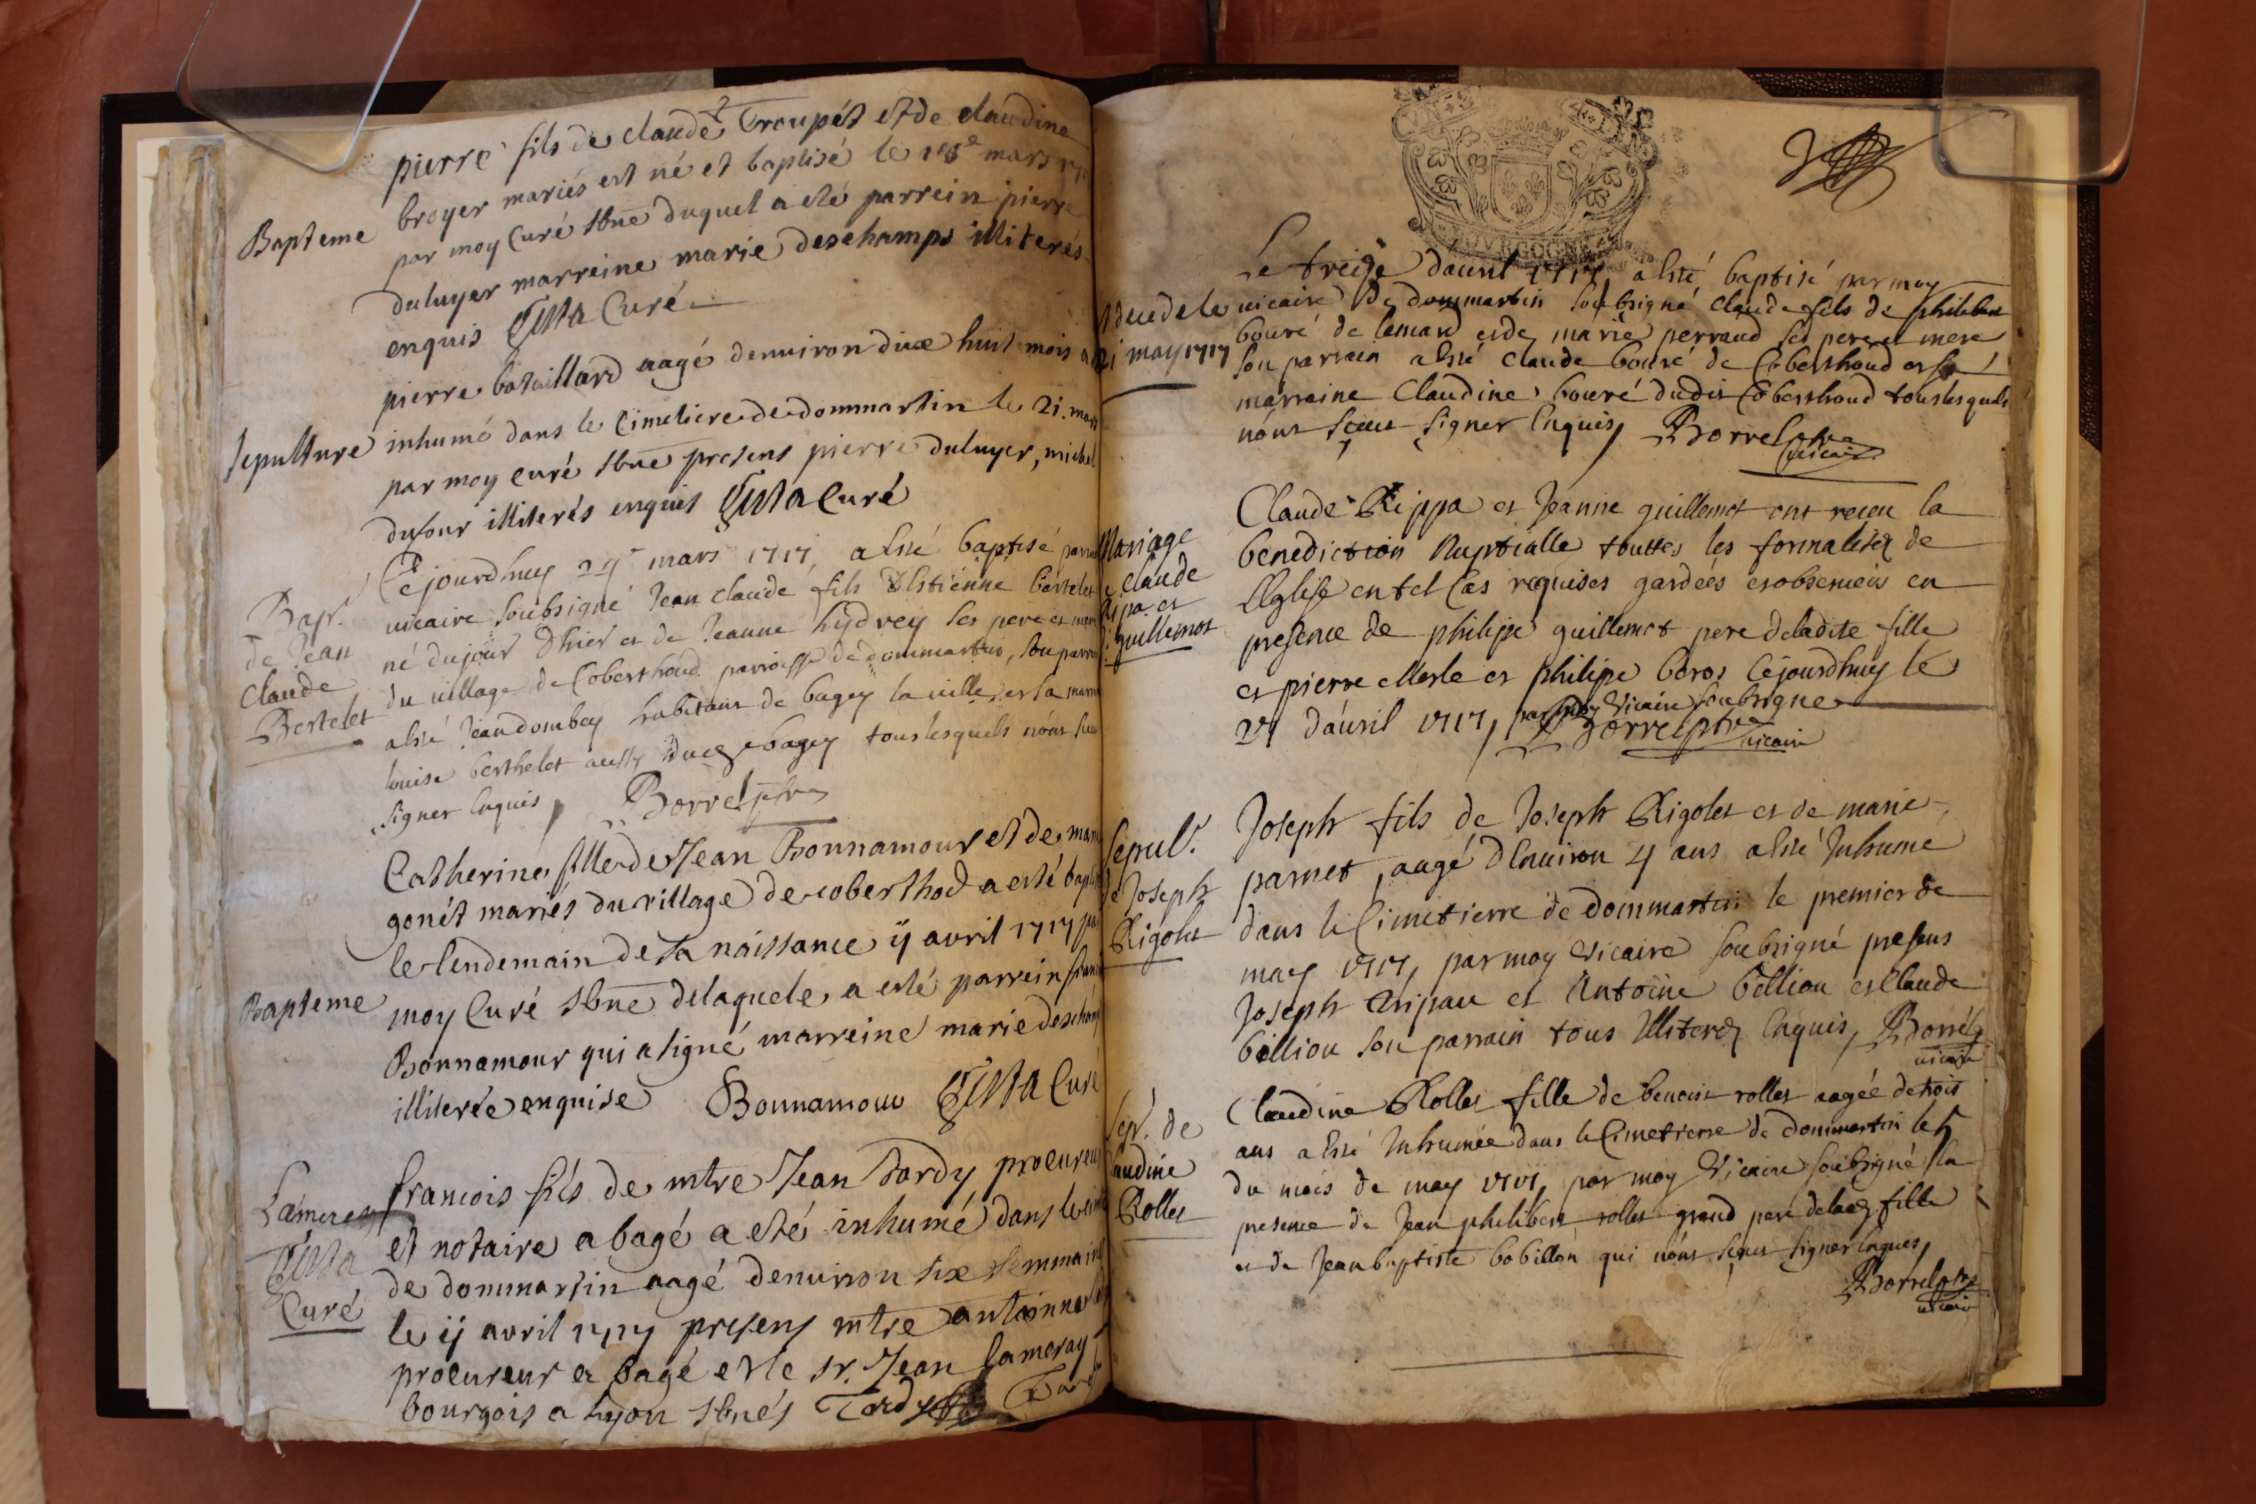 pierre fils de claude Troupét et de claudine
broyer mariés est né et baptisé le 18e mars
par moy Curé sbné duquel a eté parrein pierre
Bapteme
duluyer marreine marie deschamps illiterés
enquis Gista Curé
pierre bataillard aagé denuiron dixe huit mois a
Sepulture
inhumé dans le Cimetiere de dommartin le 21. mars
par moy curé sbné presens pierre duluyer, michel
dufour illiterés enquis Gista Curé
Cejourdhuy mars 1717 a Esté baptisé
vicaire soubsigné Jean claude fils d'Estienne bertelet
Bapt.
de Jean
Claude
Bertelet
né dujour dhier et de Jeanne hydrey ses pere et mere
du village de Coberthoud parroisse de dommartin, son parrain
a esté Jean dombey habitant de bagey la ville, et sa marr
louise berthelet aussy dud bagey tous lesquels n'ont sceu
signer Enquis, Borrel pbre
Catherine fille de Jean Bonnamour et de marie
gonét mariés du village de coberthod a esté baptisé
le lendemain de sa naissance ij avril 1717 par
Bapteme
moy Curé sbné delaquele a esté parrein
Bonnamour qui a signé marreine marie deschamps
illiterée enquise Bonnamour Gista Curé
francois fils de mtre Jean Tardy procureur
Lameray
Gista
Curé
et notaire a bagé a eté inhumé dans le
de dommartin aagé denuiron six semmaines
le ij avril 1717 presens mtre antoinne
procureur a bagé et le sr. Jean Lameray
bourgois a lyon sbnés Tardy
Le treize d'auril 1717 a Esté baptisé par moy
vicaire de dommartin soubsigné Claude fils de philibert
bouré de lemard et de marie perraud ses pere et mere
may 1717
son parrain a Esté claude bouré de Coberthoud et sa
marraine Claudine bouré dudit Coberthoud tous lesquels
n'ont sceus signer Enquis, Borrel pbre
vicaire
Claude Rippa et Jeanne guillemot ont receu la
Mariage
claude
pa et
guillemot
benediction Nuptialle touttes les formalitéz de
L'Eglise en tel Cas requises gardées et obseruées en
presence de philippe guillemot pere deladite fille
et pierre Merle et philipe boros Cejourdhuy le
27 d'auril 1717, par moy Vicaire soubsigné
Borrel pbre
vicaire
Joseph fils de Joseph Rigolet et de marie
Sepult.
de Joseph
Rigolet
parnet, aagé d'Enuiron 4 ans a Esté Inhumé
dans le Cimetierre de dommartin le premier de
may 1717, par moy Vicaire soubsigné presens
Joseph et Antoine bellion et Claude
bellion son parrain tous Illiteréz Enquis, Borrel
vicaire
Claudine Rollet fille de benoist rollet aagée de trois
Sep. de
audine
Rollet
ans a Esté Inhumée dans le Cimetierre de dommartin le 5
du mois de may 1717, par moy Vicaire soubsigné En
presence de Jean philibert rollet grand pere delad fille
et de Jean baptiste bobillon qui n'ont sceus signer Enquis,
Borrel pbre
vicaire